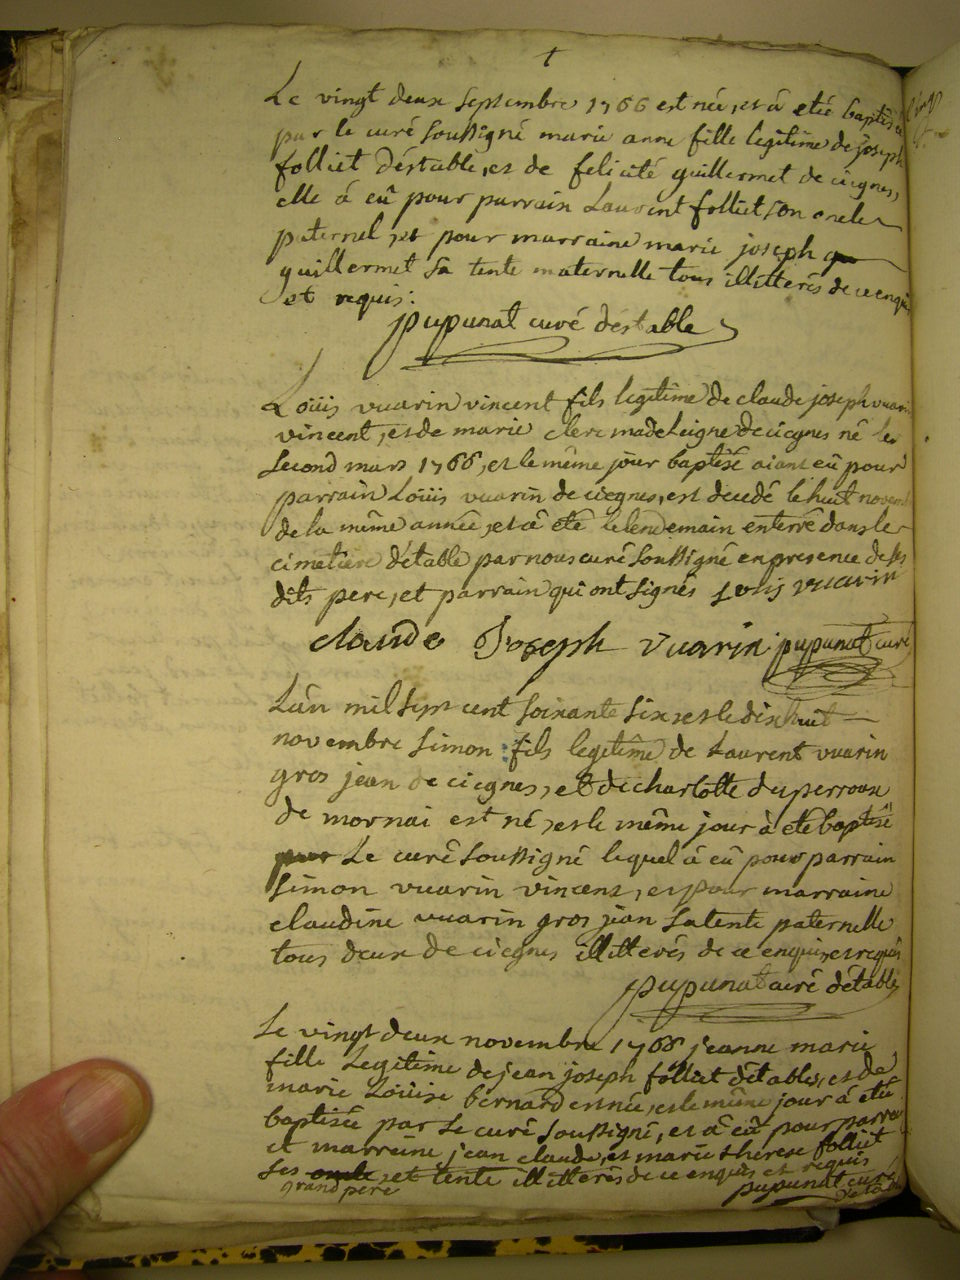 †
Le vingt deux septembre 1766 est née, et á etée baptisée
par le curé soussigné marie anne fille legitime de joseph
folliet d'éstable, et de felicité guillermet de ciegnes,
elle á eû pour parrain Laurent folliet son oncle
paternel, et pour marraine marie joseph
guillermet sa tente maternelle tous illitterés de ce enquis
et requis:
pupunat curé déstable
Loüis vuarin vincent fils legitime de claude joseph vuarin
vincent, et de marie clerc madeleigne de ciegnes né le
second mars 1766, et le même jour baptisé aiant eû pour
parrain Loüis vuarin de ciegnes, est decedé le huit novembre
de la même année, et â eté le lendemain enterré dans le
cimetière d'étable par nous curé soussigné en presence de ses
dits pere, et parrain qui ont signés Louis vuarin
claude Joseph vuarin pupunat curé
L'an mil sept cent soixante six, et le dixhuit
novembre simon fils legitime de Laurent vuarin
gros jean de ciegnes, et de charlotte duperroux
de mornai est né, et le même jour à eté baptisé
par Le curé soussigné lequel â eû pour parrain
simon vuarin vincent, et pour marraine
claudine vuarin gros jean sa tente paternelle
tous deux de ciegnes illitterés de ce enquis, et requis
pupunat curé détable
Le vingt deux novembre 1766 jeanne marie
fille Legitime de jean joseph folliet détable, et de
marie Loüise bernard est née, et le même jour à eté
baptisée par Le curé soussigné, et â eû pour parrain
et marraine jean claude, et marie therese folliet
ses oncle et tente illitterés de ce enquis et requis
grand pere pupunat curé